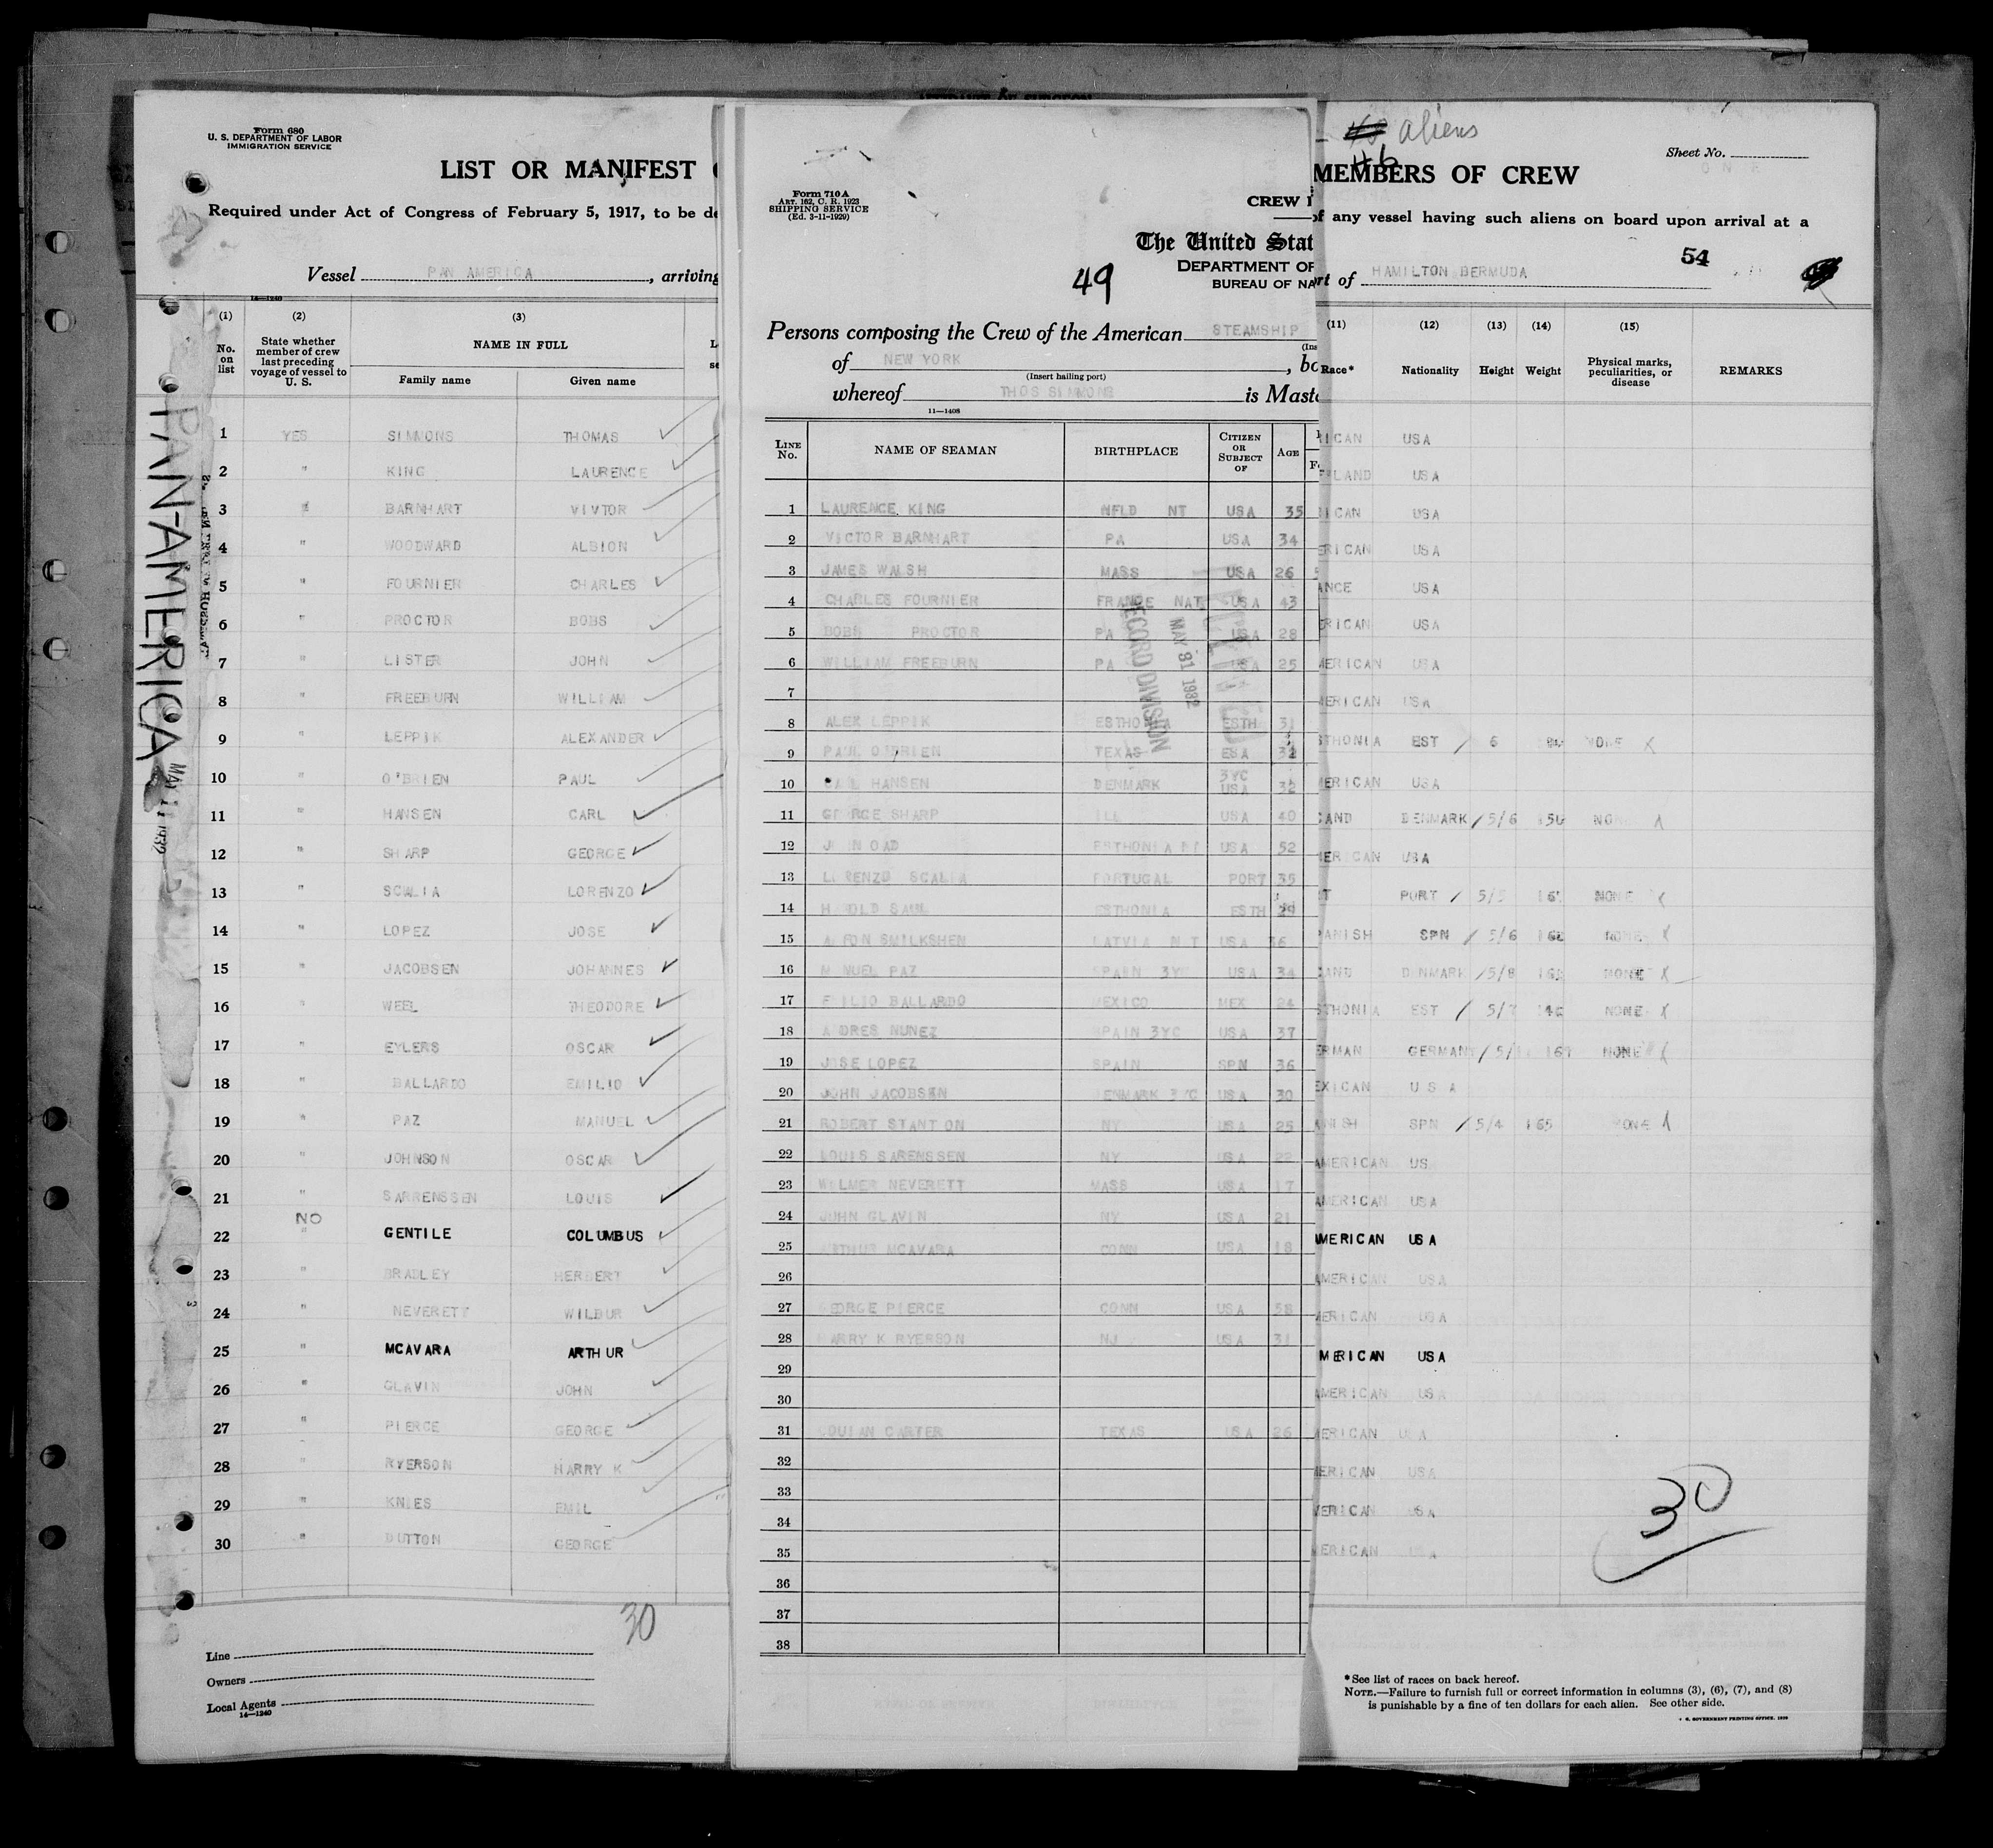 Form 680
U. S. DEPARTMENT OF LABOR
IMMIGRATION SERVICE
LIST OR MANIFEST
Required under Act of Congress of February 5, 1917, to be de
Vessel PAN AMERICA, arriving
14—1240
(1) (2) (3)
No. on list
State whether member of crew last preceding voyage of vessel to U. S.
NAME IN FULL
Family name Given name
1 YES SIMMONS THOMAS
2 " KING LAURENCE
3 " BARNHART VIVTOR
4 " WOODWARD ALBION
5 " FOURNIER CHARLES
6 " PROCTOR BOBS
7 " LISTER JOHN
8 " FREEBURN WILLIAM
9 " LEPPIK ALEXANDER
10 " O'BRIEN PAUL
11 " HANSEN CARL
12 " SHARP GEORGE
13 " SCALIA LORENZO
14 " LOPEZ JOSE
15 " JACOBSEN JOHANNES
16 " WEEL THEODORE
17 " EYLERS OSCAR
18 " BALLARDO EMILIO
19 " PAZ MANUEL
20 " JOHNSON OSCAR
21 " SARRENSSEN LOUIS
NO
22 " GENTILE COLUMBUS
23 " BRADLEY HERBERT
24 " NEVERETT WILBUR
25 " MCAVARA ARTHUR
26 " GLAVIN JOHN
27 " PIERCE GEORGE
28 " RYERSON HARRY K
29 " KNIES EMIL
30 " DUTTON GEORGE
30
Line
Owners
Local Agents
14—1240
PAN AMERICA
MAY 11 1932
Form 710 A
ART. 162, C. R. 1923
SHIPPING SERVICE
(Ed. 3-11-1929)
CREW
The United Stat
DEPARTMENT OF
BUREAU OF NA
49
Persons composing the Crew of the American STEAMSHIP
(Ins
of NEW YORK, bo
(Insert hailing port)
whereof THOS SIMMONS is Maste
11—1408
LINE No. NAME OF SEAMAN BIRTHPLACE CITIZEN OR SUBJECT OF AGE
1 LAURENCE KING NFLD NT USA 35
2 VICTOR BARNHART PA USA 34
3 JAMES WALSH MASS USA 26
4 CHARLES FOURNIER FRANCE NAT USA 43
5 BOBS PROCTOR PA USA 28
6 WILLIAM FREEBURN PA USA 25
7
8 ALEX LEPPIK ESTHONIA ESTH 31
9 PAUL O'BRIEN TEXAS ESA 32
10 CARL HANSEN DENMARK 3YC USA 32
11 GEORGE SHARP ILL USA 40
12 JOHN OAD ESTHONIA NT USA 52
13 LORENZO SCALIA PORTUGAL PORT 35
14 HAROLD SAUL ESTHONIA ESTH 29
15 ANTON SMILKSHEN LATVIA NT USA 36
16 MANUEL PAZ SPAIN 3YC USA 34
17 EMILIO BALLARDO MEXICO MEX 24
18 ANDRES NUNEZ SPAIN 3YC USA 37
19 JOSE LOPEZ SPAIN SPN 36
20 JOHN JACOBSEN DENMARK 3YC USA 30
21 ROBERT STANTON NY USA 25
22 LOUIS SARENSSEN NY USA 22
23 WILMER NEVERETT MASS USA 17
24 JOHN GLAVIN NY USA 21
25 ARTHUR MCAVARA CONN USA 18
26
27 GEORGE PIERCE CONN USA 58
28 HARRY K RYERSON NJ USA 31
29
30
31 CARTER TEXAS USA 26
32
33
34
35
36
37
38
RECORD DIVISION
MAY 31 1932
aliens
46
Sheet No.
MEMBERS OF CREW
of any vessel having such aliens on board upon arrival at a
54
rt of HAMILTON BERMUDA
(11) (12) (13) (14) (15)
Race* Nationality Height Weight Physical marks, peculiarities, or disease REMARKS
ICAN USA
LAND USA
ICAN USA
ERICAN USA
ANCE USA
ERICAN USA
MERICAN USA
MERICAN USA
STHONIA EST / 6 NONE X
MERICAN USA
CAND DENMARK / 5/6 150 NONE X
MERICAN USA
PORT / 5/5 NONE X
PANISH SPN / 5/6 NONE X
CAND DENMARK / 5/8 NONE X
STHONIA EST / 5/7 NONE X
ERMAN GERMANY / 5/ NONE X
EXICAN USA
ANISH SPN / 5/4 165 NONE X
AMERICAN US
AMERICAN USA
AMERICAN USA
AMERICAN USA
MERICAN USA
MERICAN USA
AMERICAN USA
MERICAN USA
MERICAN USA
MERICAN USA
MERICAN USA
30
*See list of races on back hereof.
NOTE.—Failure to furnish full or correct information in columns (3), (6), (7), and (8)
is punishable by a fine of ten dollars for each alien. See other side.
U. S. GOVERNMENT PRINTING OFFICE